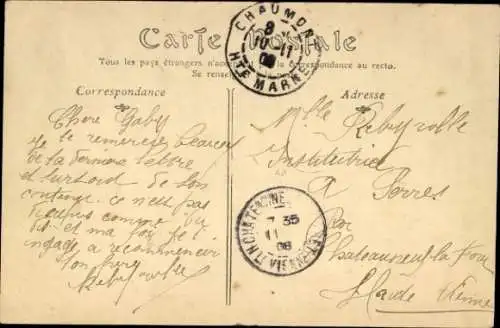 Carte Postale
Tous les pays étrangers n'acc la correspondance au recto.
Se rense
CHAUMONT
8
10 11
08
HTE MARNE
Correspondance
Adresse
Chere Gaby
Je te remercie beaucou
de ta derniere lettre
et surtout de son
contenu. ce n'est pas
comme
et ma foi je t'
engage a recommencer
ton frere
Rebeyrolle
Mlle Rebeyrolle
Institutrice
A
Par
Chateauneuf la Forêt
Haute Vienne
7 35
11
08
HTE VIENNE